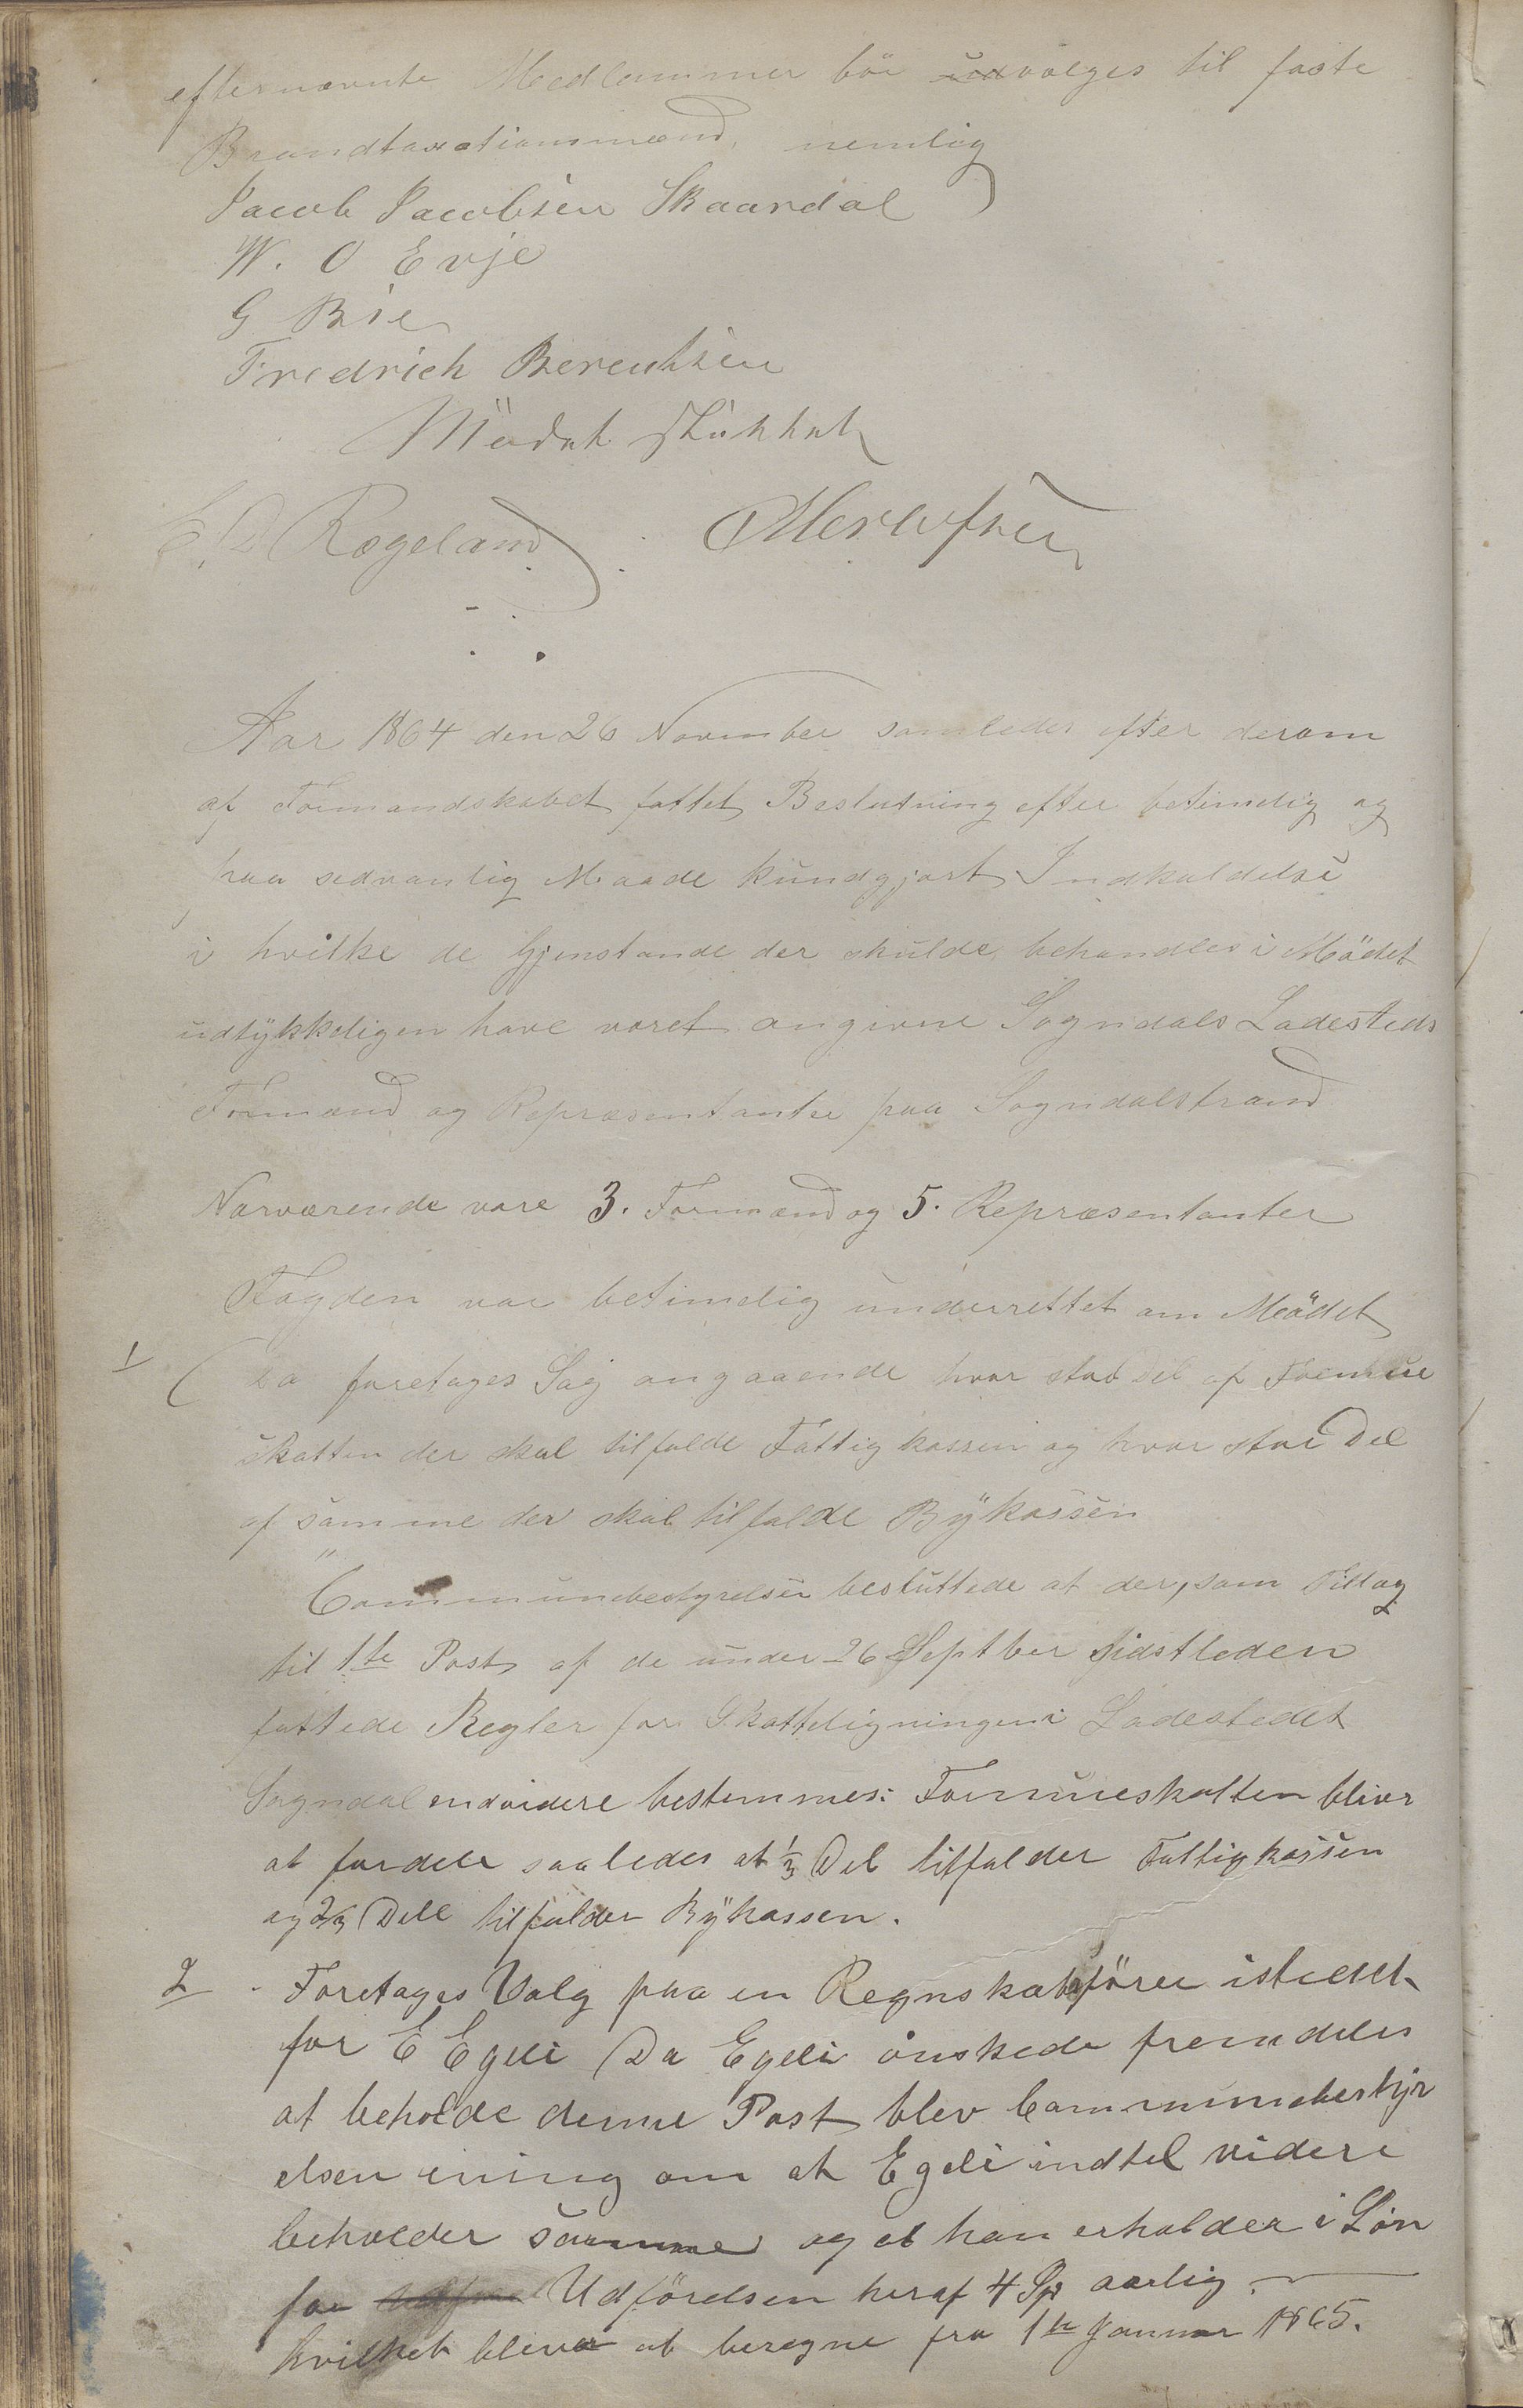 efternævnte Medlemmer bör udvælges til faste
Brandtaxationsmænd, nemlig
Jacob Jacobsen Skaardal
W. O Evje
G Bie
Fredrich Berentsen
Mödet sluttet
Rægeland
Aar 1864 den 26 November samledes efter derom
af Formandskabet fattet Beslutning efter betimelig og
paa sedvanlig Maade kundgjort Indkaldelse
i hvilke de Gjenstande der skulde behandles i Mödet
udtÿkkeligen have været angivne Sogndals Ladesteds
Formænd og Repræsentanter paa Sogndalstrand
Nærværende vare 3. Formænd og 5. Repræsentanter
Fogden var betimelig underrettet om Mödet
1 Da foretages Sag angaaende hvor stor Del af Formue
skatten der skal tilfalde Fattigkassen og hvor stor Del
af samme der skal tilfalde Bÿkassen
"Communebestyrelsen besluttede at der, som Tillæg
til 1ste Post af de under 26 Septber sidstleden
fattede Regler for Skatteligningen i Ladestedet
Sogndal endvidere bestemmes: Formueskatten bliver
at fordele saaledes at 1/3 Del tilfalder Fattigkassen
og 2/3 Dele tilfalder Bÿkassen.
2 Foretages Valg paa en Regnskabsförer istedet
for E Egeli Da Egeli önskede fremdeles
at beholde denne Post blev Communebestÿr
elsen eening om at Egeli indtil videre
beholder samme og at han erholder i Lön
for Udförelsen heraf 4 Spd aarlig.
hvilket bliver at beregne fra 1te Januar 1865.